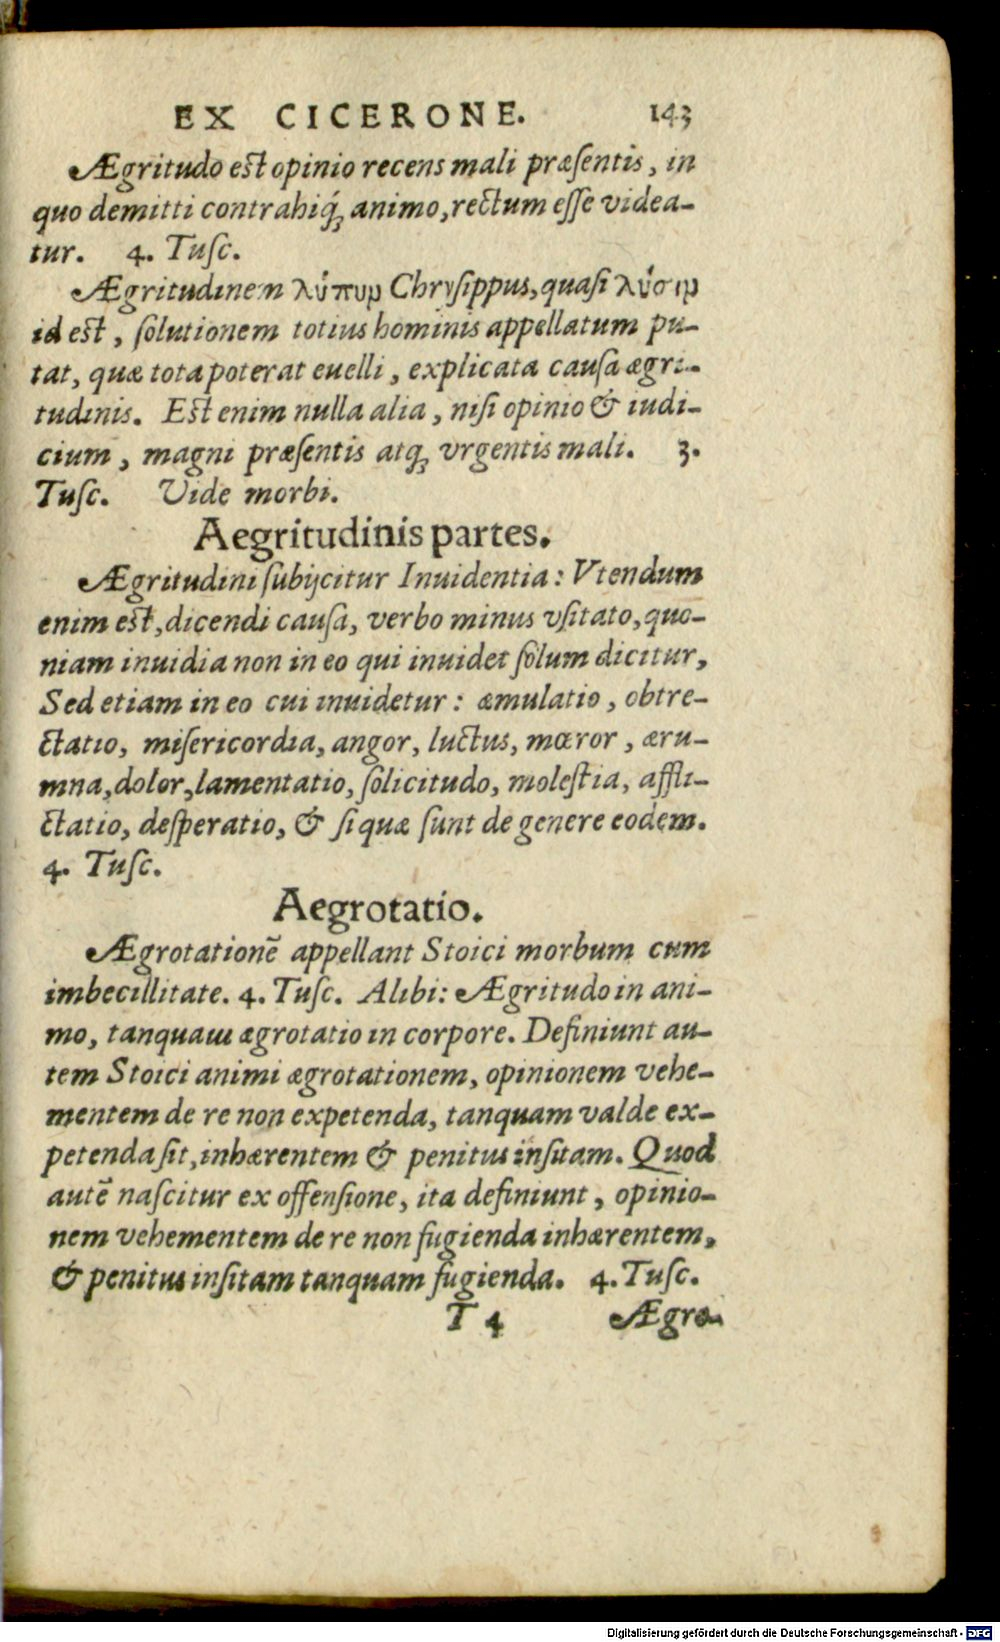 EX CICERONE. 143
Ægritudo est opinio recens mali præſentis, in
quo demitti contrahiq́; animo, rectum eſſe videa-
tur. 4. Tuſc.
Ægritudinem λύπην Chryſippus, quaſi λύσιν
id est, ſolutionem totius hominis appellatum pu-
tat, quæ tota poterat euelli, explicata cauſa ægri-
tudinis. Est enim nulla alia, niſi opinio & iudi-
cium, magni præſentis atq; vrgentis mali. 3.
Tuſc. Vide morbi.
Aegritudinis partes.
Ægritudini ſubijcitur Inuidentia: Vtendum
enim est, dicendi cauſa, verbo minus vſitato, quo-
niam inuidia non in eo qui inuidet ſolum dicitur,
Sed etiam in eo cui inuidetur: æmulatio, obtre-
ctatio, miſericordia, angor, luctus, mœror, æru-
mna, dolor, lamentatio, ſolicitudo, moleſtia, affli-
ctatio, deſperatio, & ſi quæ ſunt de genere eodem.
4. Tuſc.
Aegrotatio.
Ægrotationē appellant Stoici morbum cum
imbecillitate. 4. Tuſc. Alibi: Ægritudo in ani-
mo, tanquam ægrotatio in corpore. Definiunt au-
tem Stoici animi ægrotationem, opinionem vehe-
mentem de re non expetenda, tanquam valde ex-
petenda ſit, inhærentem & penitus inſitam. Quod
autē naſcitur ex offenſione, ita definiunt, opinio-
nem vehementem de re non fugienda inhærentem,
& penitus inſitam tanquam fugienda. 4. Tuſc.
T 4 Ægro-
Digitalisierung gefördert durch die Deutsche Forschungsgemeinschaft - DFG